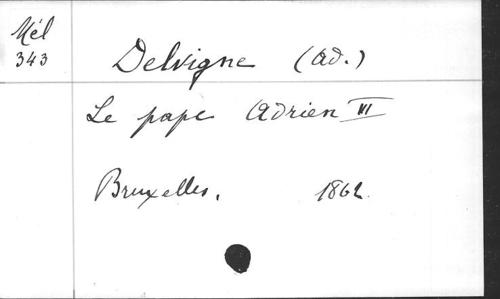 Mél
343
Delvigne (Ad.)
Le pape Adrien III
Bruxelles, 1862